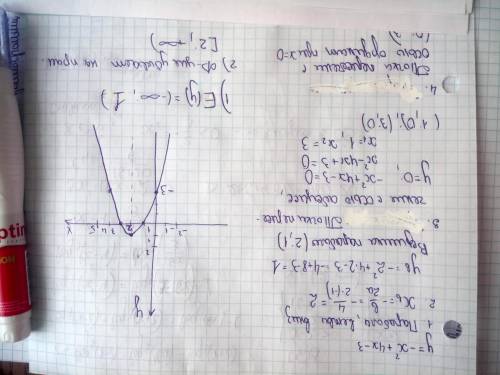 y = -x² + 4x - 3
1. Парабола, ветви вниз
2. xв = -b/2a = -4/2·(-1) = 2
yв = -2² + 4·2 - 3 = -4 + 8 - 3 = 1
Вершина параболы (2; 1)
3. Точки пересе-
чения с осью абсцисс,
y = 0, -x² + 4x - 3 = 0
x² - 4x + 3 = 0
x₁ = 1, x₂ = 3
(1, 0); (3; 0)
4.
Точка пересечения с
осью ординат при x = 0
y
x
-3
1) E(y) = (-∞; 1)
2) ф-ция убывает на пром.
[2; +∞)